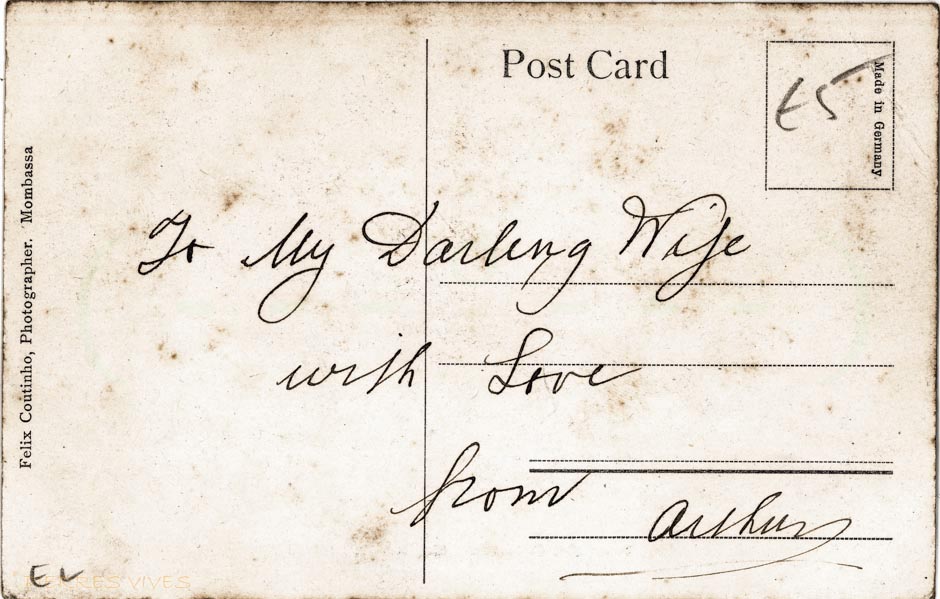 Post Card
Made in Germany
£5
Felix Coutinho, Photographer. Mombassa
To My Darling Wife
with Love
from
Arthur
EL